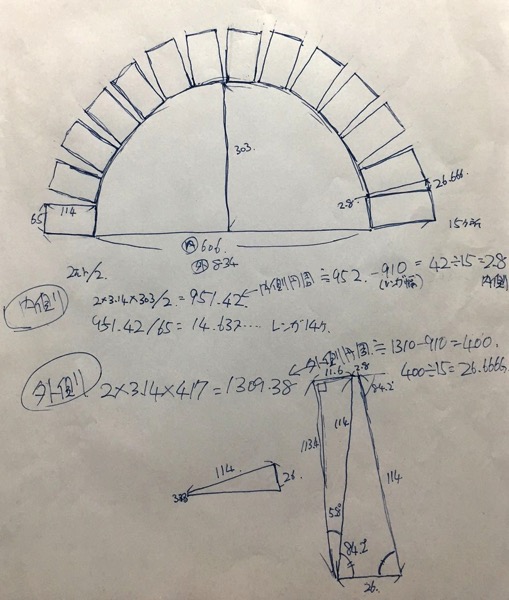 303.
2.8
26.666.
65
114
15ヶ所
㋐606.
外834
2πr/2.
内側
2×3.14×303/2.=951.42.←内側円周≒952.-910=42÷15=2.8
(レンガ幅)
内側
951.42/65=14.637.... レンガ14ヶ
外側
2×3.14×417=1309.38
←外側円周≒1310-910=400.
400÷15=26.6666
11.6
2.8
84.2°
113.4
114
114
114.
26.
5.8°
84.2
26.